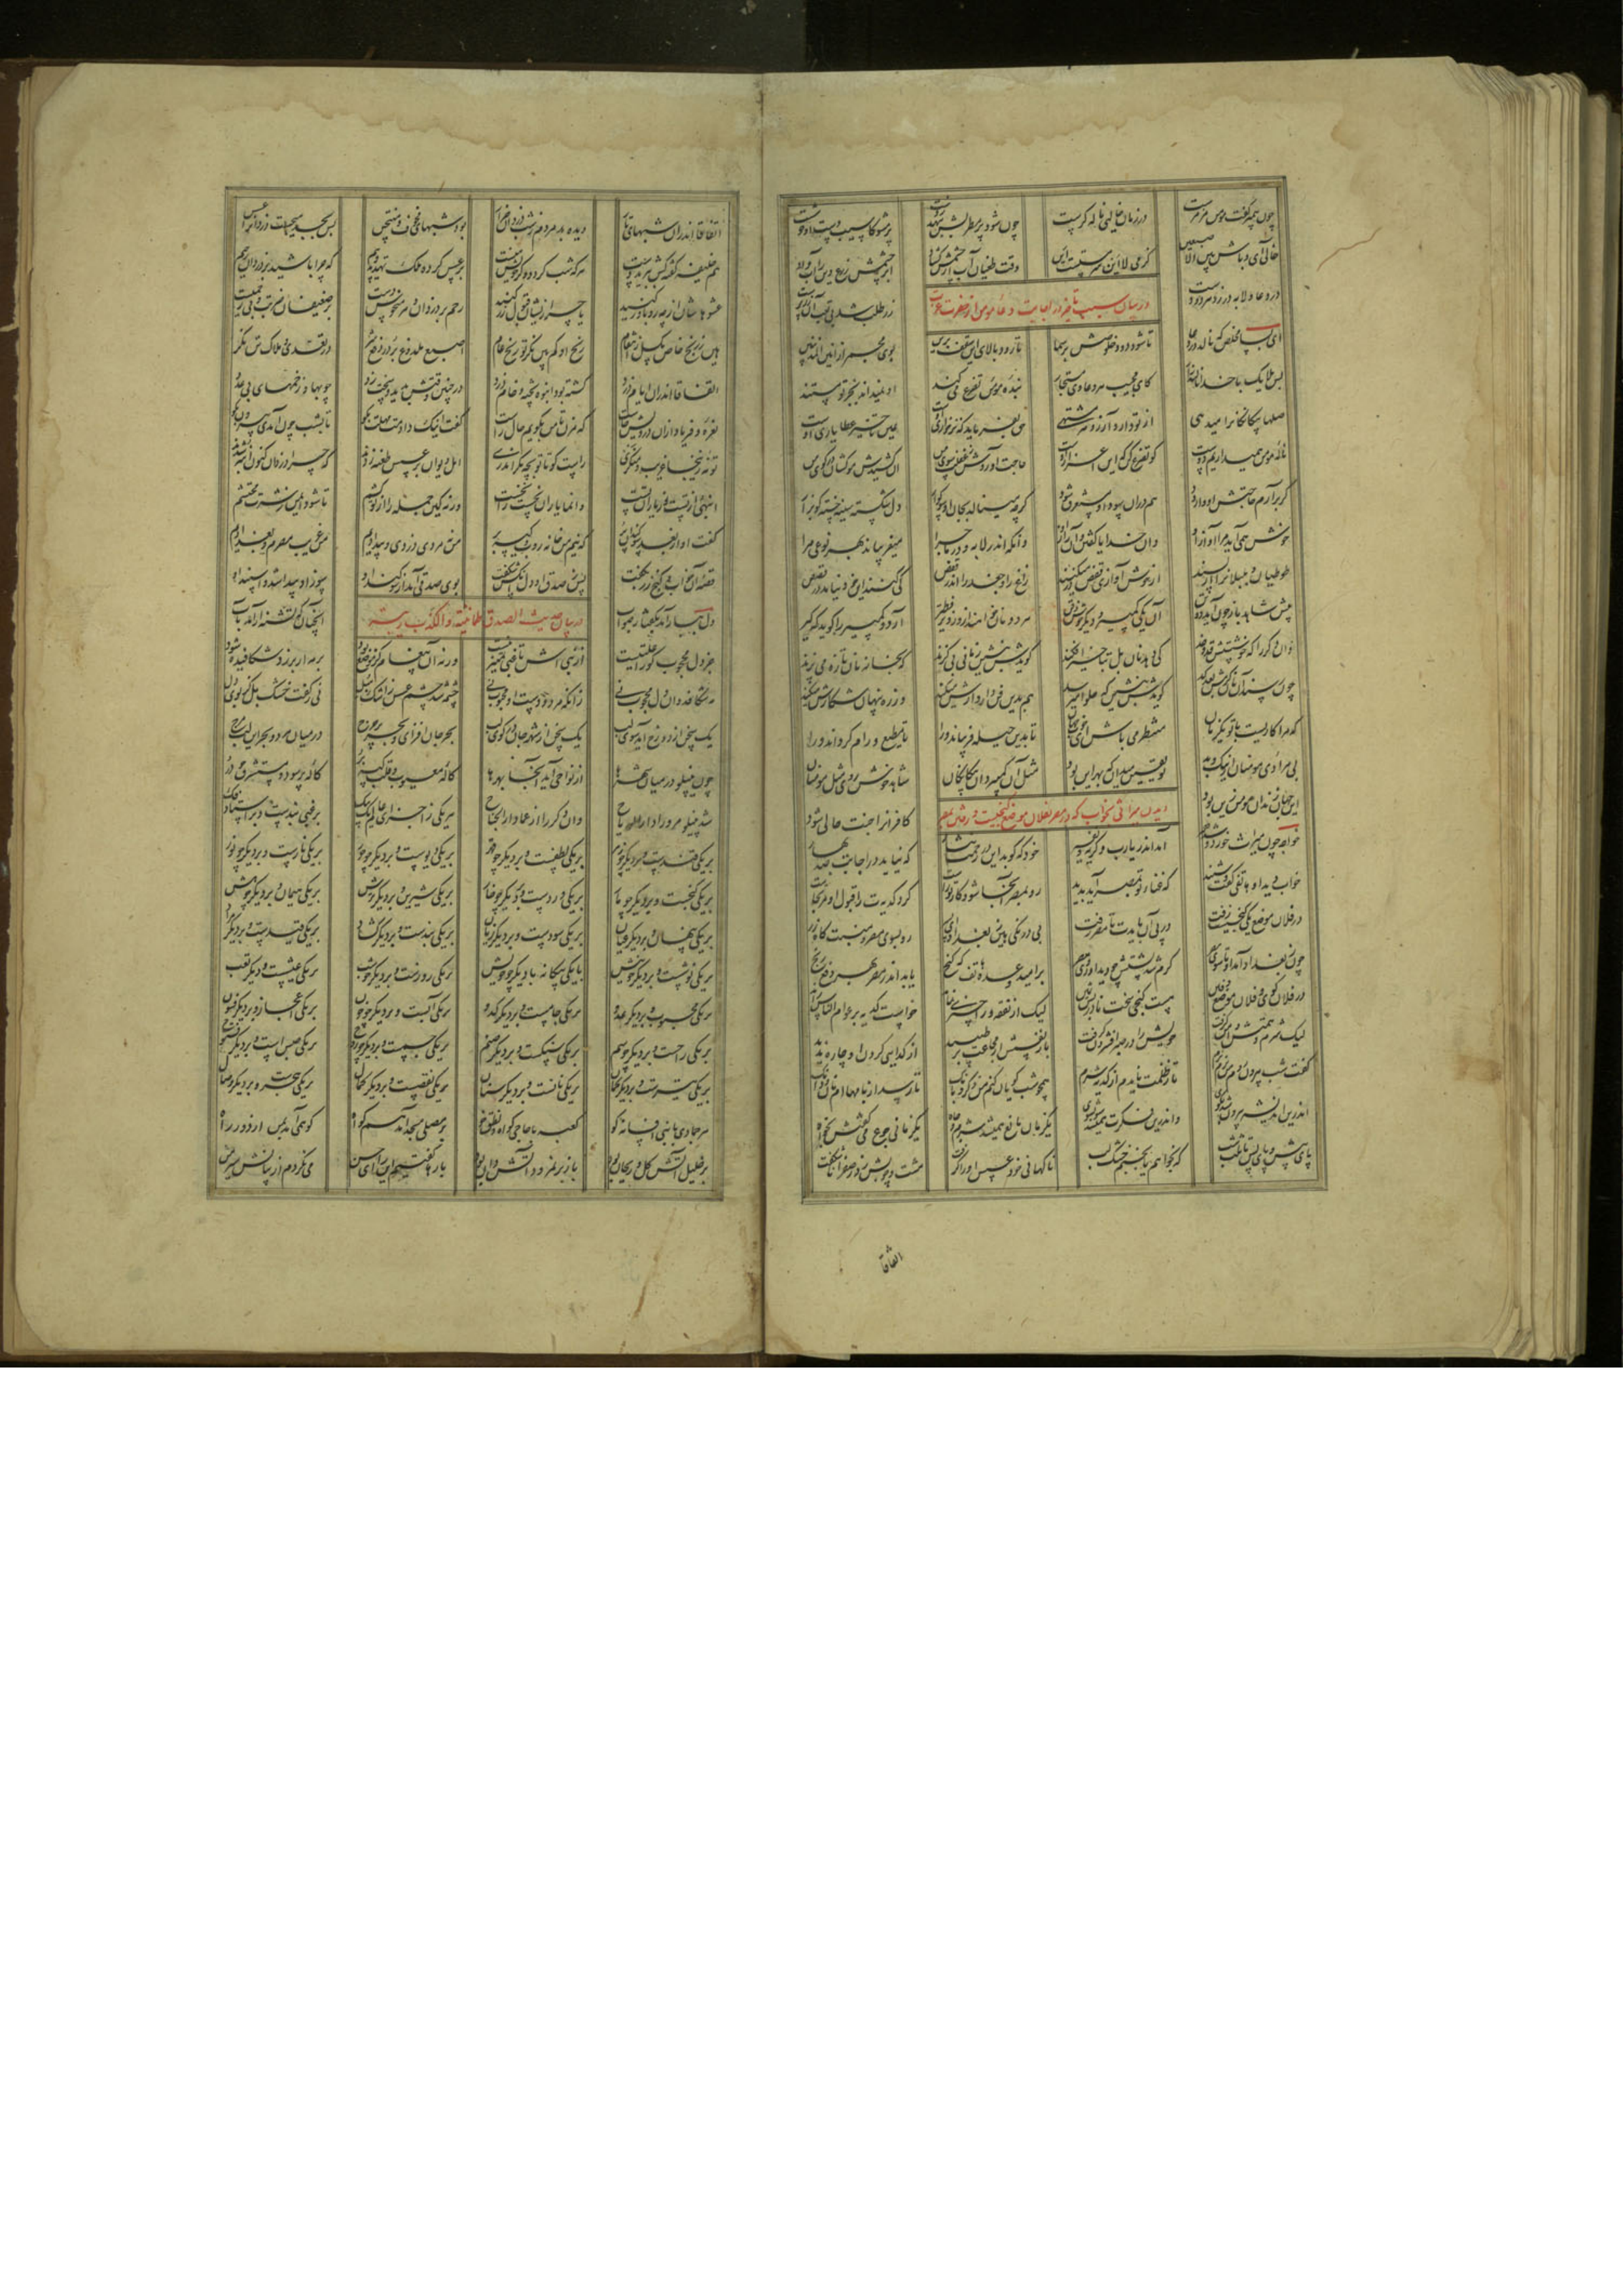 چون پیمبر گفت مومن مزهرست در زمان خالیی ناله گرست چون شود پر مطربش بنهد ز دست پر مشو کاسیب دست او خوشست
خالی آی و باش بین الاصبعین کز می لا این سرمستست این وقت طغیان آب از چشمش گشاد ابر چشمش زرع دین را آب داد
در دعا و لابه در زد هر دو دست زر طلب شد بی تعب آن زرپرست
در بیان سبب تاخیر در اجابت دعاء مومن از حضرت عزت
ای بسا مخلص که نالد در دعا تا شود دود خلوصش بر سما تا رود بالای این سقف برین بوی مجمر از انین المذنبین
پس ملایک با خدا نالند زار کای مجیب هر دعا وی مستجار بنده مومن تضرع می کند او نمیداند بجز تو مستند
بیگانگانرا میدهی از تو دارد آرزو هر مشتهی حق بفرماید که نز خواری اوست عین تاخیر عطا یاری اوست
ناله مومن همیداریم دوست کو تضرع کن که این اعزاز اوست حاجت آوردش ز غفلت سوی من آن کشیدش مو کشان در کوی من
گر برآرم حاجتش او وا رود هم دران گرچه مینالد بجان دل شکسته سینه خسته گو بزار
خوش همی آید مرا آواز او وان خدایا گفتن و آن راز او وانکه اندر لابه و در ماجرا میفریباند بهر نوعی مرا
طوطیان و بلبلانرا از پسند از خوش آوازی قفص در میکنند زاغ را و جغد را اندر قفص کی کنند این خود نیامد در قصص
پیش شاهد باز چون آید دو تن آن یکی کمپیر و دیگر خوش ذقن هر دو نان خواهند او زوتر فطیر آرد و کمپیر را گوید که گیر
وان دگر را که خوشستش قد و خد کی دهد نان بل بتاخیر افکند گویدش بنشین زمانی بی گزند که بخانه نان تازه می پزند
چون رسد آن نان گرمش بعد کد گویدش بنشین که حلوا میرسد هم بدین فن دار دارش میکند وز ره پنهان شکارش میکند
که مرا کاریست با تو یک زمان منتظر می باش ای خوب جهان تا بدین حیله فریباند ورا تا مطیع و رام گرداند ورا
بی مرادی مومنان از نیک و بد تو یقین میدان که بهر این بود مثل آن کمپیر دان بیگانگان شاهد خوش روی مثل مومنان
این جهان زندان مومن زین بود کافرانرا جنت حالی شود
دیدن میراثی بخواب که در مصر بفلان موضع گنجیست و رفتن بمصر
خواجه چون میراث خورد و شد فقیر آمد اندر یارب و گریه و نفیر خود که کوبد این در رحمت نثار که نیاید در اجابت صد بهار
خواب دید او هاتفی گفت او شنید که غناء تو بمصر آید پدید رو بمصر آنجا شود کار تو راست کرد کدیت را قبول او مرتجاست
در فلان موضع یکی گنجیست زفت در پی آن بایدت تا مصر رفت بی درنگی هین ز بغداد ای نژند رو بسوی مصر و منبت گاه قند
چون ز بغداد آمد او تا سوی مصر گرم شد پشتش چو دید او روی مصر بر امید وعده هاتف که گنج یابد اندر مصر بهر دفع رنج
در فلان کوی و فلان موضع دفین هست گنجی سخت نادر بس گزین لیک از نفقه ورا چیزی نماند خواست کدیه بر عوام الناس راند
لیک شرم و همتش دامن گرفت خویش را در صبر افشردن گرفت باز نفسش از مجاعت بر طپید از گدایی کردن او چاره ندید
گفت شب بیرون روم من نرم نرم تا ز ظلمت نایدم از کدیه شرم همچو شب کوکی کنم من ذکر و بانگ تا رسد از بامها ام نیم دانگ
اندرین اندیشه بیرون شد بکوی واندرین فکرت همیشد سو بسوی یک زمان مانع همیشد شرم و جاه یک زمانی جوع می گفتش بخواه
پای پیش و پای پس تا ثلث شب که بخواهم یا بخسبم خشک لب ناگهانی خود عسس او را گرفت مشت و چوبش زد ز صفرا ناشکفت
اتفاقا
اتفاقا اندران شبهای تار دیده بد مردم ز شب دزدان ضرار بود شبهای مخوف و منتحس پس بجد میجست دزدانرا عسس
هم خلیفه گفته که ببرید دست هر که شب گردد وگر خویش منست بر عسس کرده ملک تهدید و بیم که چرا باشید بر دزدان رحیم
عشوهاشان از چه رو باور کنید یا چرا زیشان قبول زر کنید رحم بر دزدان و هر منحوس دست بر ضعیفان ضربت و بی رحمیست
هین ز رنج خاص مگسل ز انتقام رنج او کم بین نگر تو رنج عام اصبع ملدوغ بر در دفع شر در تعدی و هلاک تن نگر
اتفاقا اندران ایام دزد گشته بود انبوه پخته و خام دزد در چنین وقتش بدید و سخت زد چوبها و زخمهای بی عدد
نعره و فریاد ازان درویش خاست که مزن تا من بگویم حال راست گفت اینک دادمت مهلت بگو تا بشب چون آمدی بیرون بکو
تو نه زینجا غریب و منکری راست گو تا تو بچه مکر اندری اهل دیوان بر عسس طعنه زدند که چرا دزدان کنون انبه شدند
انبهی از تست و از یاران تست وانما یاران زشتت را نخست ورنه کین جمله را از تو کشم تا شود ایمن زر هر محتشم
گفت او از بعد سوگندان پر که نیم من خانه روب و کیسه بر من نه مردی دزدی و بیدادیم من غریب مصرم و بغدادیم
قصه آن خواب و گنج زر بگفت پس ز صدق او دل آنکس شکفت بوی صدقی آمد از سوگند او سوز او پیدا شد و اسپند او
در بیان حدیث الصدق طمانینة و الکذب ریبة
دل بیارامد بگفتار صواب آنچنان که تشنه آرامد بآب
جز دل محجوب کو را علتیست از نبی اش تا غبی تمییز نیست ورنه آن پیغام کز موضع بود بر مه ار برزد شکافیده شود
مه شکافد وان دل محجوب نی زانکه مردودست او محبوب نی چشمه شد چشم عسس ز اشک مبل نی ز گفت خشک بل از بوی دل
یک سخن از دوزخ آید سوی لب یک سخن از شهر جان در کوی لب بحر جان افزای و بحر پر حرج در میان هر دو بحر این لب مرج
چون ینپلو در میان شهرها از نواحی آید آنجا بهرها کاله معیوب و قلب کیسه بر کاله پر سود و مستشرف چو در
شد ینپلو مرورا دار الرباح وان دگر را از عما دار الجناح هر یکی ز اجزای عالم یک بیک بر غبی بندست و بر استاد فک
بر یکی قندست و بر دیگر چو زهر بر یکی لطفست و بر دیگر چو قهر بر یکی دیوست و بر دیگر چو حور بر یکی نارست و بر دیگر چو نور
بر یکی گنجست و بر دیگر چو مار بر یکی وردست و بر دیگر چو خار بر یکی شیرین و بر دیگر ترش بر یکی و بر دیگر چو هش
بر یکی پنهان و بر دیگر عیان بر یکی سودست و بر دیگر زیان بر یکی بندست و بر دیگر گشاد بر یکی قیدست و بر دیگر مراد
بر یکی نوشست و بر دیگر چو نیش با یکی بیگانه با دیگر چو خویش بر یکی روزست و بر دیگر چو شب بر یکی عیشست و دیگر تعب
بر یکی محبوب و بر دیگر عدو بر یکی جامست و بر دیگر کدو بر یکی آبست و بر دیگر چو خون بر یکی اعجاز و بر دیگر فسون
بر یکی و بر دیگر بر یکی سنگست و بر دیگر صنم بر یکی و بر دیگر بر یکی حبس است و بر دیگر فتوح
بر یکی و بر دیگر بر یکی نانست و بر دیگر سنان بر یکی نقصست و بر دیگر کمال بر یکی هجرست و بر دیگر وصال
هر جمادی با نبی افسانه گو کعبه با حاجی گواه و نطق خو بر مصلی مسجد آمد هم گواه کو همی آمد بمن از دور راه
بر خلیل آتش گل و ریحان بود باز بر نمرود آتش دان بود بارها گفتیم این را ای حسن می نگردم از بیانش سیر من